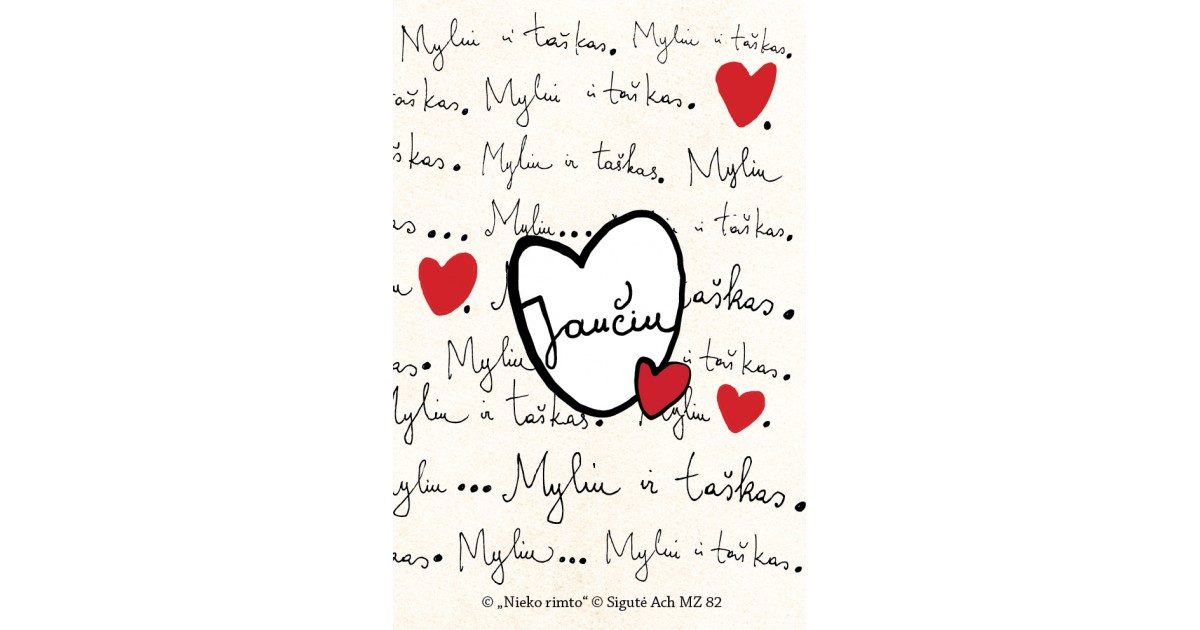 Myliu ir taškas. Myliu ir taškas.
aškas. Myliu ir taškas.
škas. Myliu ir taškas. Myliu
as... Myliu... ir taškas.
u aškas.
Jaučiu
as. Myliu ir taškas.
Myliu ir taškas. Myliu
yliu... Myliu ir taškas.
kas. Myliu... Myliu ir taškas.
© „Nieko rimto“ © Sigutė Ach MZ 82